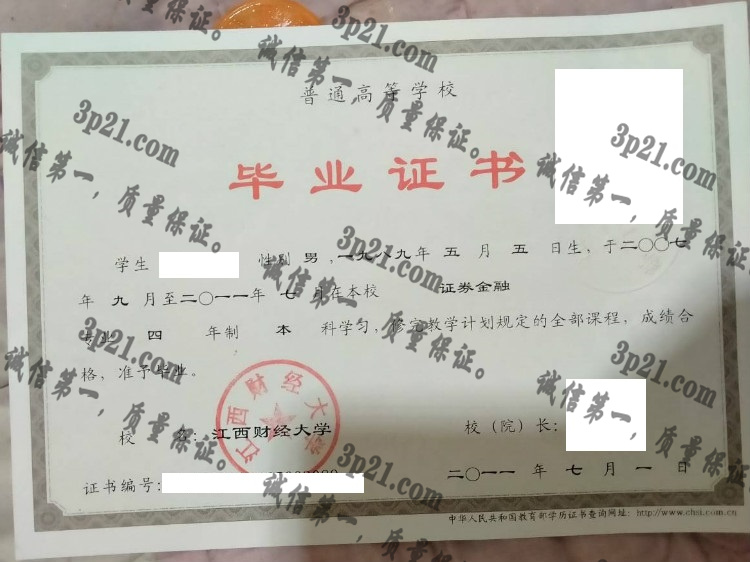 普通高等学校
毕业证书
学生 性别 男 ,一九八九年 五 月 五 日生，于二〇〇七
年 九 月至二〇一一年 七 月在本校 证券金融
专业 四 年制 本 科学习，修完教学计划规定的全部课程，成绩合
格，准予毕业。
校 名：江西财经大学
校（院）长：
江西财经大学
证书编号：
二〇一一 年 七 月 一 日
中华人民共和国教育部学历证书查询网址：http://www.chsi.com.cn
3p21.com
诚信第一，质量保证。
3p21.com
诚信第一，质量保证。
3p21.com
诚信第一，质量保证。
3p21.com
诚信第一，质量保证。
3p21.com
诚信第一，质量保证。
3p21.com
诚信第一，质量保证。
3p21.com
诚信第一，质量保证。
3p21.com
诚信第一，质量保证。